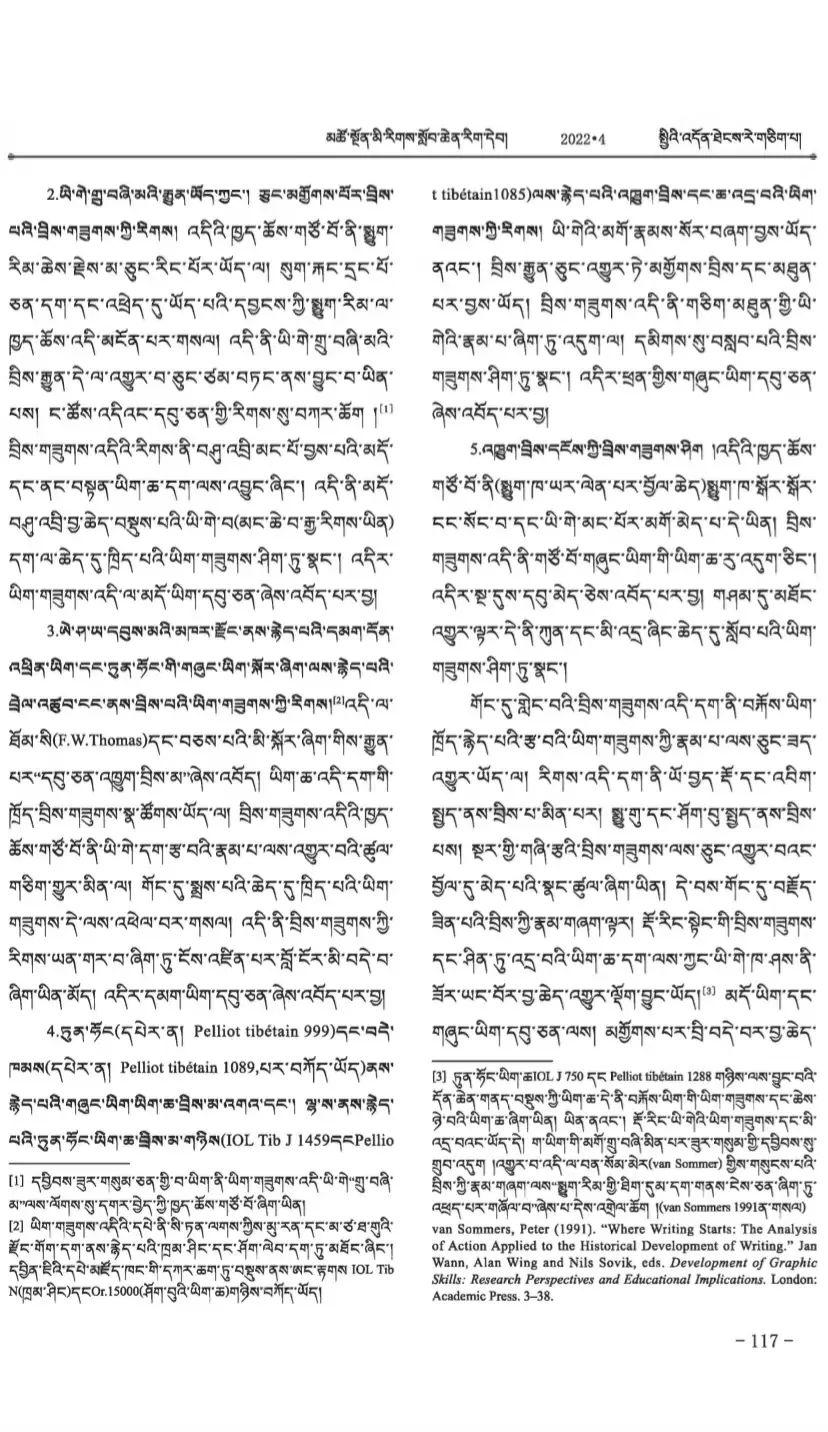 མཚོ་སྔོན་མི་རིགས་སློབ་ཆེན་རིག་དེབ། 2022•4 སྤྱིའི་འདོན་ཐེངས་རེ་གཅིག་པ།
2.ཡི་གེ་གྲུ་བཞི་མའི་རྒྱུན་ཡོད་ཀྱང་། ཅུང་མགྱོགས་པོར་བྲིས་
པའི་བྲིས་གཟུགས་ཀྱི་རིགས། འདིའི་ཁྱད་ཆོས་གཙོ་བོ་ནི་སྨྱུག་
རིམ་ཆེས་རྗེས་མ་ཅུང་རིང་པོར་ཡོད་ལ། སུག་རྐང་དྲང་པོ་
ཅན་དག་དང་འཕྲེད་དུ་ཡོད་པའི་དབྱངས་ཀྱི་སྨྱུག་རིམ་ལ་
ཁྱད་ཆོས་འདི་མངོན་པར་གསལ། འདི་ནི་ཡི་གེ་གྲུ་བཞི་མའི་
བྲིས་རྒྱུན་དེ་ལ་འགྱུར་བ་ཅུང་ཙམ་བཏང་ནས་བྱུང་བ་ཡིན་
པས། ང་ཚོས་འདིའང་དབུ་ཅན་གྱི་རིགས་སུ་བཀར་ཆོག །[1]
བྲིས་གཟུགས་འདིའི་རིགས་ནི་བཤུ་འབྲི་མང་པོ་བྱས་པའི་མདོ་
དང་ནང་བསྟན་ཡིག་ཆ་དག་ལས་འབྱུང་ཞིང་། འདི་ནི་མདོ་
བཤུ་འབྲི་བྱ་ཆེད་བསྡུས་པའི་ཡི་གེ་བ(མང་ཆེ་བ་རྒྱ་རིགས་ཡིན)
དག་ལ་ཆེད་དུ་ཁྲིད་པའི་ཡིག་གཟུགས་ཤིག་ཏུ་སྣང་། འདིར་
ཡིག་གཟུགས་འདི་ལ་མདོ་ཡིག་དབུ་ཅན་ཞེས་འབོད་པར་བྱ།
3.ཨེ་ཤ་ཡ་དབུས་མའི་མཁར་རྫོང་ནས་རྙེད་པའི་དམག་དོན་
འཕྲིན་ཡིག་དང་ཏུན་ཧོང་གི་གཞུང་ཡིག་སྐོར་ཞིག་ལས་རྙེད་པའི་
བྲེལ་འཚུབ་ངང་ནས་བྲིས་པའི་ཡིག་གཟུགས་ཀྱི་རིགས།[2]འདི་ལ་
ཐོམ་སི(F.W.Thomas)དང་བཅས་པའི་མི་སྐོར་ཞིག་གིས་རྒྱུན་
པར“དབུ་ཅན་འཁྱུག་བྲིས་མ”ཞེས་འབོད། ཡིག་ཆ་འདི་དག་གི་
ཁྲོད་བྲིས་གཟུགས་སྣ་ཚོགས་ཡོད་ལ། བྲིས་གཟུགས་འདིའི་ཁྱད་
ཆོས་གཙོ་བོ་ནི་ཡི་གེ་དག་རྩ་བའི་རྣམ་པ་ལས་འགྱུར་བའི་ཚུལ་
གཅིག་གྱུར་མིན་ལ། གོང་དུ་སྨྲས་པའི་ཆེད་དུ་ཁྲིད་པའི་ཡིག་
གཟུགས་དེ་ལས་འཕེལ་བར་གསལ། འདི་ནི་བྲིས་གཟུགས་ཀྱི་
རིགས་ཡན་གར་བ་ཞིག་ཏུ་ངོས་འཛིན་པར་བློ་ངོར་མི་བདེ་བ་
ཞིག་ཡིན་མོད། འདིར་དམག་ཡིག་དབུ་ཅན་ཞེས་འབོད་པར་བྱ།
4.ཏུན་ཧོང(དཔེར་ན། Pelliot tibétain 999)དང་བདེ་
ཁམས(དཔེར་ན། Pelliot tibétain 1089,པར་བཀོད་ཡོད)ནས་
རྙེད་པའི་གཞུང་ཡིག་ཡིག་ཆ་བྲིས་མ་འགའ་དང་། ལྷ་ས་ནས་རྙེད་
པའི་ཏུན་ཧོང་ཡིག་ཆ་བྲིས་མ་གཉིས(IOL Tib J 1459དངPellio
[1] དབྱིབས་ཟུར་གསུམ་ཅན་གྱི་བ་ཡིག་ནི་ཡིག་གཟུགས་འདི་ཡི་གེ“གྲུ་བཞི་
མ”ལས་ལོགས་སུ་དགར་བྱེད་ཀྱི་ཁྱད་ཆོས་གཙོ་བོ་ཞིག་ཡིན།
[2] ཡིག་གཟུགས་འདིའི་དཔེ་ནི་སི་ཏན་ལགས་ཀྱིས་མུ་རན་དང་མ་ཙ་ཐ་གུའི་
རྫོང་གོག་དག་ནས་རྙེད་པའི་ཁྲམ་ཤིང་དང་ཤོག་ལེབ་དག་ཏུ་མཐོང་ཞིང་།
དབྱིན་ཇིའི་དཔེ་མཛོད་ཁང་གི་དཀར་ཆག་ཏུ་བསྡུས་ནས་ཨང་རྟགས IOL Tib
N(ཁྲམ་ཤིང)དངOr.15000(ཤོག་བུའི་ཡིག་ཆ)གཉིས་བཀོད་ཡོད།
t tibétain1085)ལས་རྙེད་པའི་འཁྱུག་བྲིས་དང་ཆ་འདྲ་བའི་ཡིག་
གཟུགས་ཀྱི་རིགས། ཡི་གེའི་མགོ་རྣམས་སོར་བཞག་བྱས་ཡོད་
ནའང་། བྲིས་རྒྱུན་ཅུང་འགྱུར་ཏེ་མགྱོགས་བྲིས་དང་མཐུན་
པར་བྱས་ཡོད། བྲིས་གཟུགས་འདི་ནི་གཅིག་མཐུན་གྱི་ཡི་
གེའི་རྣམ་པ་ཞིག་ཏུ་འདུག་ལ། དམིགས་སུ་བསླབ་པའི་བྲིས་
གཟུགས་ཤིག་ཏུ་སྣང་། འདིར་ཕྲན་གྱིས་གཞུང་ཡིག་དབུ་ཅན་
ཞེས་འབོད་པར་བྱ།
5.འཁྱུག་བྲིས་དངོས་ཀྱི་བྲིས་གཟུགས་ཤིག །འདིའི་ཁྱད་ཆོས་
གཙོ་བོ་ནི(སྨྱུག་ཁ་ཡར་ལེན་པར་བྱོལ་ཆེད)སྨྱུག་ཁ་སྒོར་སྒོར་
ངང་སོང་བ་དང་ཡི་གེ་མང་པོར་མགོ་མེད་པ་དེ་ཡིན། བྲིས་
གཟུགས་འདི་ནི་གཙོ་བོ་གཞུང་ཡིག་གི་ཡིག་ཆ་རུ་འདུག་ཅིང་།
འདིར་སྔ་དུས་དབུ་མེད་ཅེས་འབོད་པར་བྱ། གཤམ་དུ་མཐོང་
འགྱུར་ལྟར་དེ་ནི་ཀུན་དང་མི་འདྲ་ཞིང་ཆེད་དུ་སློབ་པའི་ཡིག་
གཟུགས་ཤིག་ཏུ་སྣང་།
གོང་དུ་གླེང་བའི་བྲིས་གཟུགས་འདི་དག་ནི་བརྐོས་ཡིག་
ཁྲོད་རྙེད་པའི་རྩ་བའི་ཡིག་གཟུགས་ཀྱི་རྣམ་པ་ལས་ཅུང་ཟད་
འགྱུར་ཡོད་ལ། རིགས་འདི་དག་ནི་ཡོ་བྱད་རྡོ་དང་འབིག་
སྤྱད་ནས་བྲིས་པ་མིན་པར། སྨྱུ་གུ་དང་ཤོག་བུ་སྤྱད་ནས་བྲིས་
པས། སྔར་གྱི་གཞི་རྩའི་བྲིས་གཟུགས་ལས་ཅུང་འགྱུར་བའང་
བྱོལ་དུ་མེད་པའི་སྣང་ཚུལ་ཞིག་ཡིན། དེ་བས་གོང་དུ་བརྗོད་
ཟིན་པའི་བྲིས་ཀྱི་རྣམ་གཞག་ལྟར། རྡོ་རིང་སྟེང་གི་བྲིས་གཟུགས་
དང་ཤིན་ཏུ་འདྲ་བའི་ཡིག་ཆ་དག་ལས་ཀྱང་ཡི་གེ་ཁ་ཤས་ནི་
ཟོར་ཡང་བོར་བྱ་ཆེད་འགྱུར་ལྡོག་བྱུང་ཡོད།[3] མདོ་ཡིག་དང་
གཞུང་ཡིག་དབུ་ཅན་ལས། མགྱོགས་པར་བྲི་བདེ་བར་བྱ་ཆེད་
[3] ཏུན་ཧོང་ཡིག་ཆIOL J 750 དང Pelliot tibétain 1288 གཉིས་ལས་བྱུང་བའི་
དོན་ཆེན་གནད་བསྡུས་ཀྱི་ཡིག་ཆ་དེ་ནི་བརྐོས་ཡིག་གི་ཡིག་གཟུགས་དང་ཆེས་
ཉེ་བའི་ཡིག་ཆ་ཞིག་ཡིན། ཡིན་ནའང་། རྡོ་རིང་ཡི་གེའི་ཡིག་གཟུགས་དང་མི་
འདྲ་བའང་ཡོད་དེ། ག་ཡིག་གི་མགོ་གྲུ་བཞི་མིན་པར་ཟུར་གསུམ་གྱི་དབྱིབས་སུ་
གྲུབ་འདུག །འགྱུར་བ་འདི་ལ་བན་སོམ་མེར(van Sommer) གྱིས་གསུངས་པའི་
བྲིས་ཀྱི་རྣམ་གཞག་ལས“སྨྱུག་རིམ་གྱི་ཐིག་དུམ་དག་གནས་ངེས་ཅན་ཞིག་ཏུ་
འཕྲད་པར་གཞོལ་བ”ཞེས་པ་དེས་འགྲེལ་ཆོག །(van Sommers 1991ན་གསལ)
van Sommers, Peter (1991). “Where Writing Starts: The Analysis
of Action Applied to the Historical Development of Writing.” Jan
Wann, Alan Wing and Nils Sovik, eds. Development of Graphic
Skills: Research Perspectives and Educational Implications. London:
Academic Press. 3–38.
– 117 –